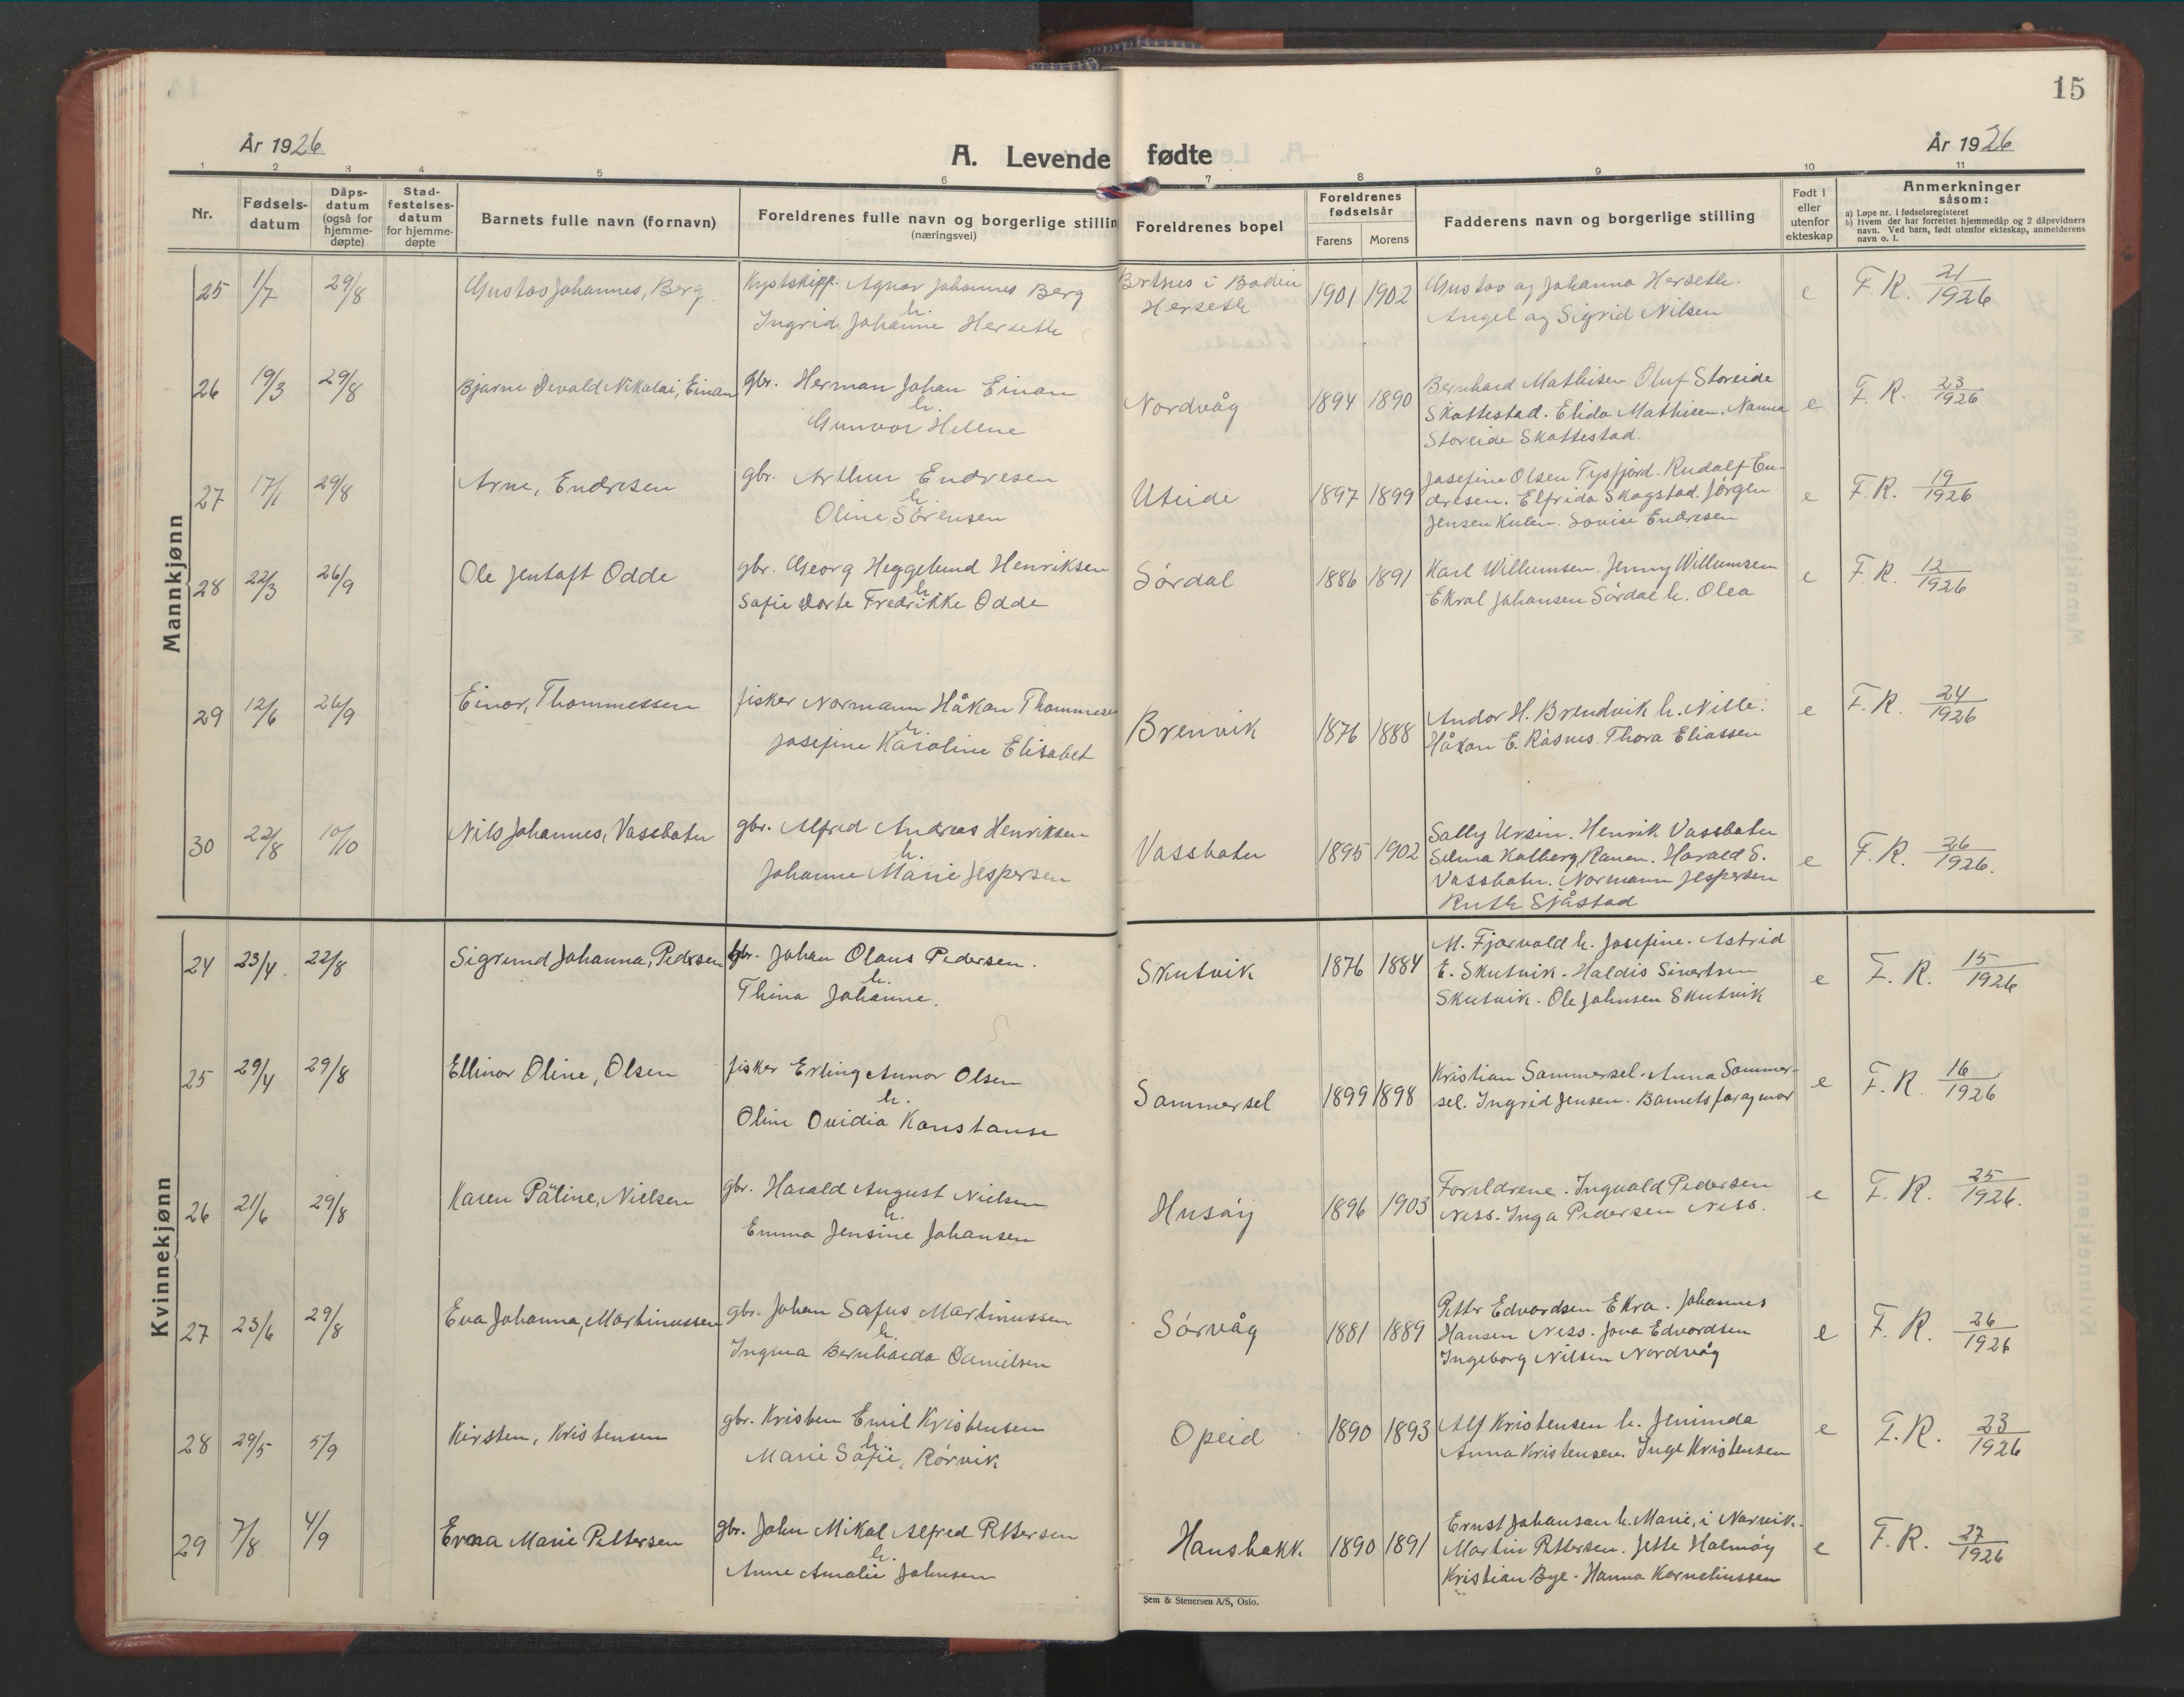 15
År 1926
År 1926
A. Levende fødte
1 2 3 4 5 6 7 8 9 10 11
Nr.
Fødsels-
datum
Dåps-
datum
(også for
hjemme-
døpte)
Stad-
festelses-
datum
for hjemme-
døpte
Barnets fulle navn (fornavn)
Foreldrenes fulle navn og borgerlige stillin
(næringsvei)
Foreldrenes bopel
Foreldrenes
fødselsår
Farens Morens
Fadderens navn og borgerlige stilling
Født i
eller
utenfor
ekteskap
Anmerkninger
såsom:
a) Løpe nr. i fødselsregisteret
b) Hvem der har forrettet hjemmedåp og 2 dåpsvidners
navn. Ved barn, født utenfor ekteskap, anmelderens
navn o. l.
Mannkjønn
25 1/7 29/8 Gustav Johannes, Berg.
Kystskipp. Agnar Johannes Berg
h.
Ingrid Johanne Herseth
Bertnes i Bodin
Herseth
1901 1902
Gustav og Johanna Herseth.
Angel og Sigrid Nilsen
e F.R. 21/1926
26 19/3 29/8 Bjarne Devald Nikolai, Einan
gbr. Herman Johan Einan
h.
Gunvor Helene
Nordvåg
1894 1890
Bernhard Mathisen Oluf Storeide
Skottestad. Elida Mathisen. Nanna
Storeide Skottestad.
e F.R. 23/1926
27 17/1 29/8 Arne, Endresen
gbr. Arthur Endresen
h.
Oline Sørensen
Uteide
1897 1899
Josefine Olsen Tysfjord. Rudolf En-
dresen. Elfrida Skogstad. Jørgen
Jensen Kulen. Lovise Endresen
e F.R. 19/1926
28 22/3 26/9 Ole Jentoft Odde
gbr. Georg Heggelund Henriksen
h.
Sofie Dorte Fredrikke Odde
Sørdal
1886 1891
Karl Willumsen. Jenny Willumsen
Ekral Johansen Sørdal h. Olea
e F.R. 12/1926
29 12/6 26/9 Einar, Thommessen
fisker Normann Håkon Thommesen
h.
Josefine Karoline Elisabet
Brenvik
1876 1888
Andor H. Brendvik h. Nille.
Håkon E. Råsnes. Thora Eliassen
e F.R. 24/1926
30 22/8 10/10 Nils Johannes, Vassbotn
gbr. Alfred Andreas Henriksen
h.
Johanne Marie Jespersen
Vassbotn
1895 1902
Sally Ursin. Henrik Vassbotn
Selma Kalberg Ranen. Harald S.
Vassbotn. Normann Jespersen
Ruth Sjåstad
e F.R. 36/1926.
Kvinnekjønn
24 23/4. 22/8 Sigrund Johanna, Pedersen
gbr. Johan Olaus Pedersen.
h.
Thina Johanne.
Skutvik
1876 1884
M. Fjærvold h. Josefine. Astrid
E. Skutvik. Haldis Sivertsen
Skutvik. Ole Johnsen Skutvik
e F.R. 15/1926
25 29/4 29/8 Ellinor Oline, Olsen
fisker Erling Annor Olsen
h.
Oline Ovidia Konstanse
Sommersel
1899 1898
Kristian Sommersel. Anna Sommer-
sel. Ingrid Jensen. Barnets far og mor
e F.R. 16/1926
26 21/6 29/8 Karen Päline, Nielsen
gbr. Harald August Nielsen
h.
Emma Jensine Johansen
Husøy
1896 1903
Foreldrene. Ingvald Pedersen
Ness. Inga Pedersen Ness.
e F.R. 25/1926.
27 23/6 29/8 Eva Johanna, Martinussen
gbr. Johan Sofus Martinussen
h.
Ingina Bernharda Danielsen
Sørvåg
1881 1889
Petter Edvardsen Ekra. Johannes
Hansen Ness. Jova Edvardsen
Ingeborg Nilsen Nordvåg
e F.R. 26/1926
28 29/5 5/9 Kirsten, Kristensen
gbr. Kristen Emil Kristensen
h.
Marie Sofie, Rørvik
Opeid
1890 1893
Alf Kristensen h. Jenimda
Anna Kristensen. Inge Kristensen
e F.R. 23/1926
29 7/8 4/9 Erna Marie Pettersen
gbr. John Mikal Alfred Pettersen
h.
Anne Amalie Johnsen
Hansbakk.
1890 1891
Ernst Johansan h. Marie, i Narvik.
Martin Pettersen. Jette Halmøy
Kristian Bye. Hanna Korneliussen
e F.R. 27/1926
Sem & Stenersen A/S, Oslo.